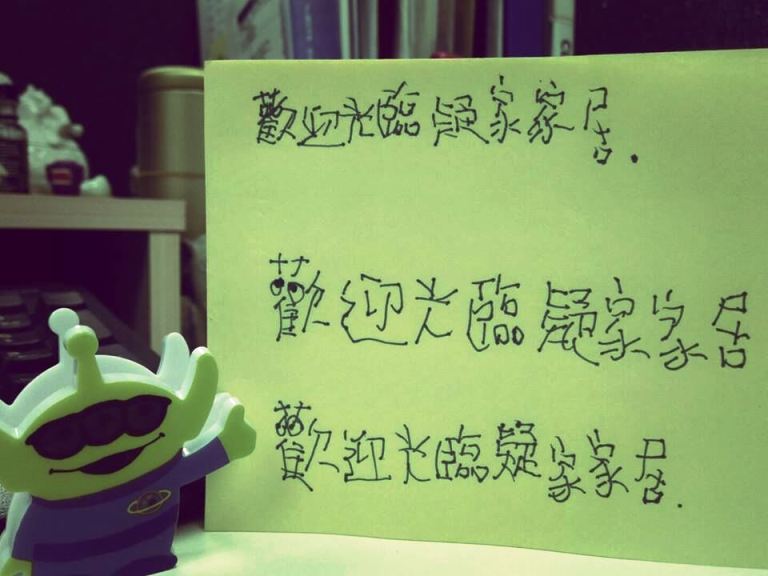 歡迎光臨疑家家居.
歡迎光臨疑家家居
歡迎光臨疑家家居.